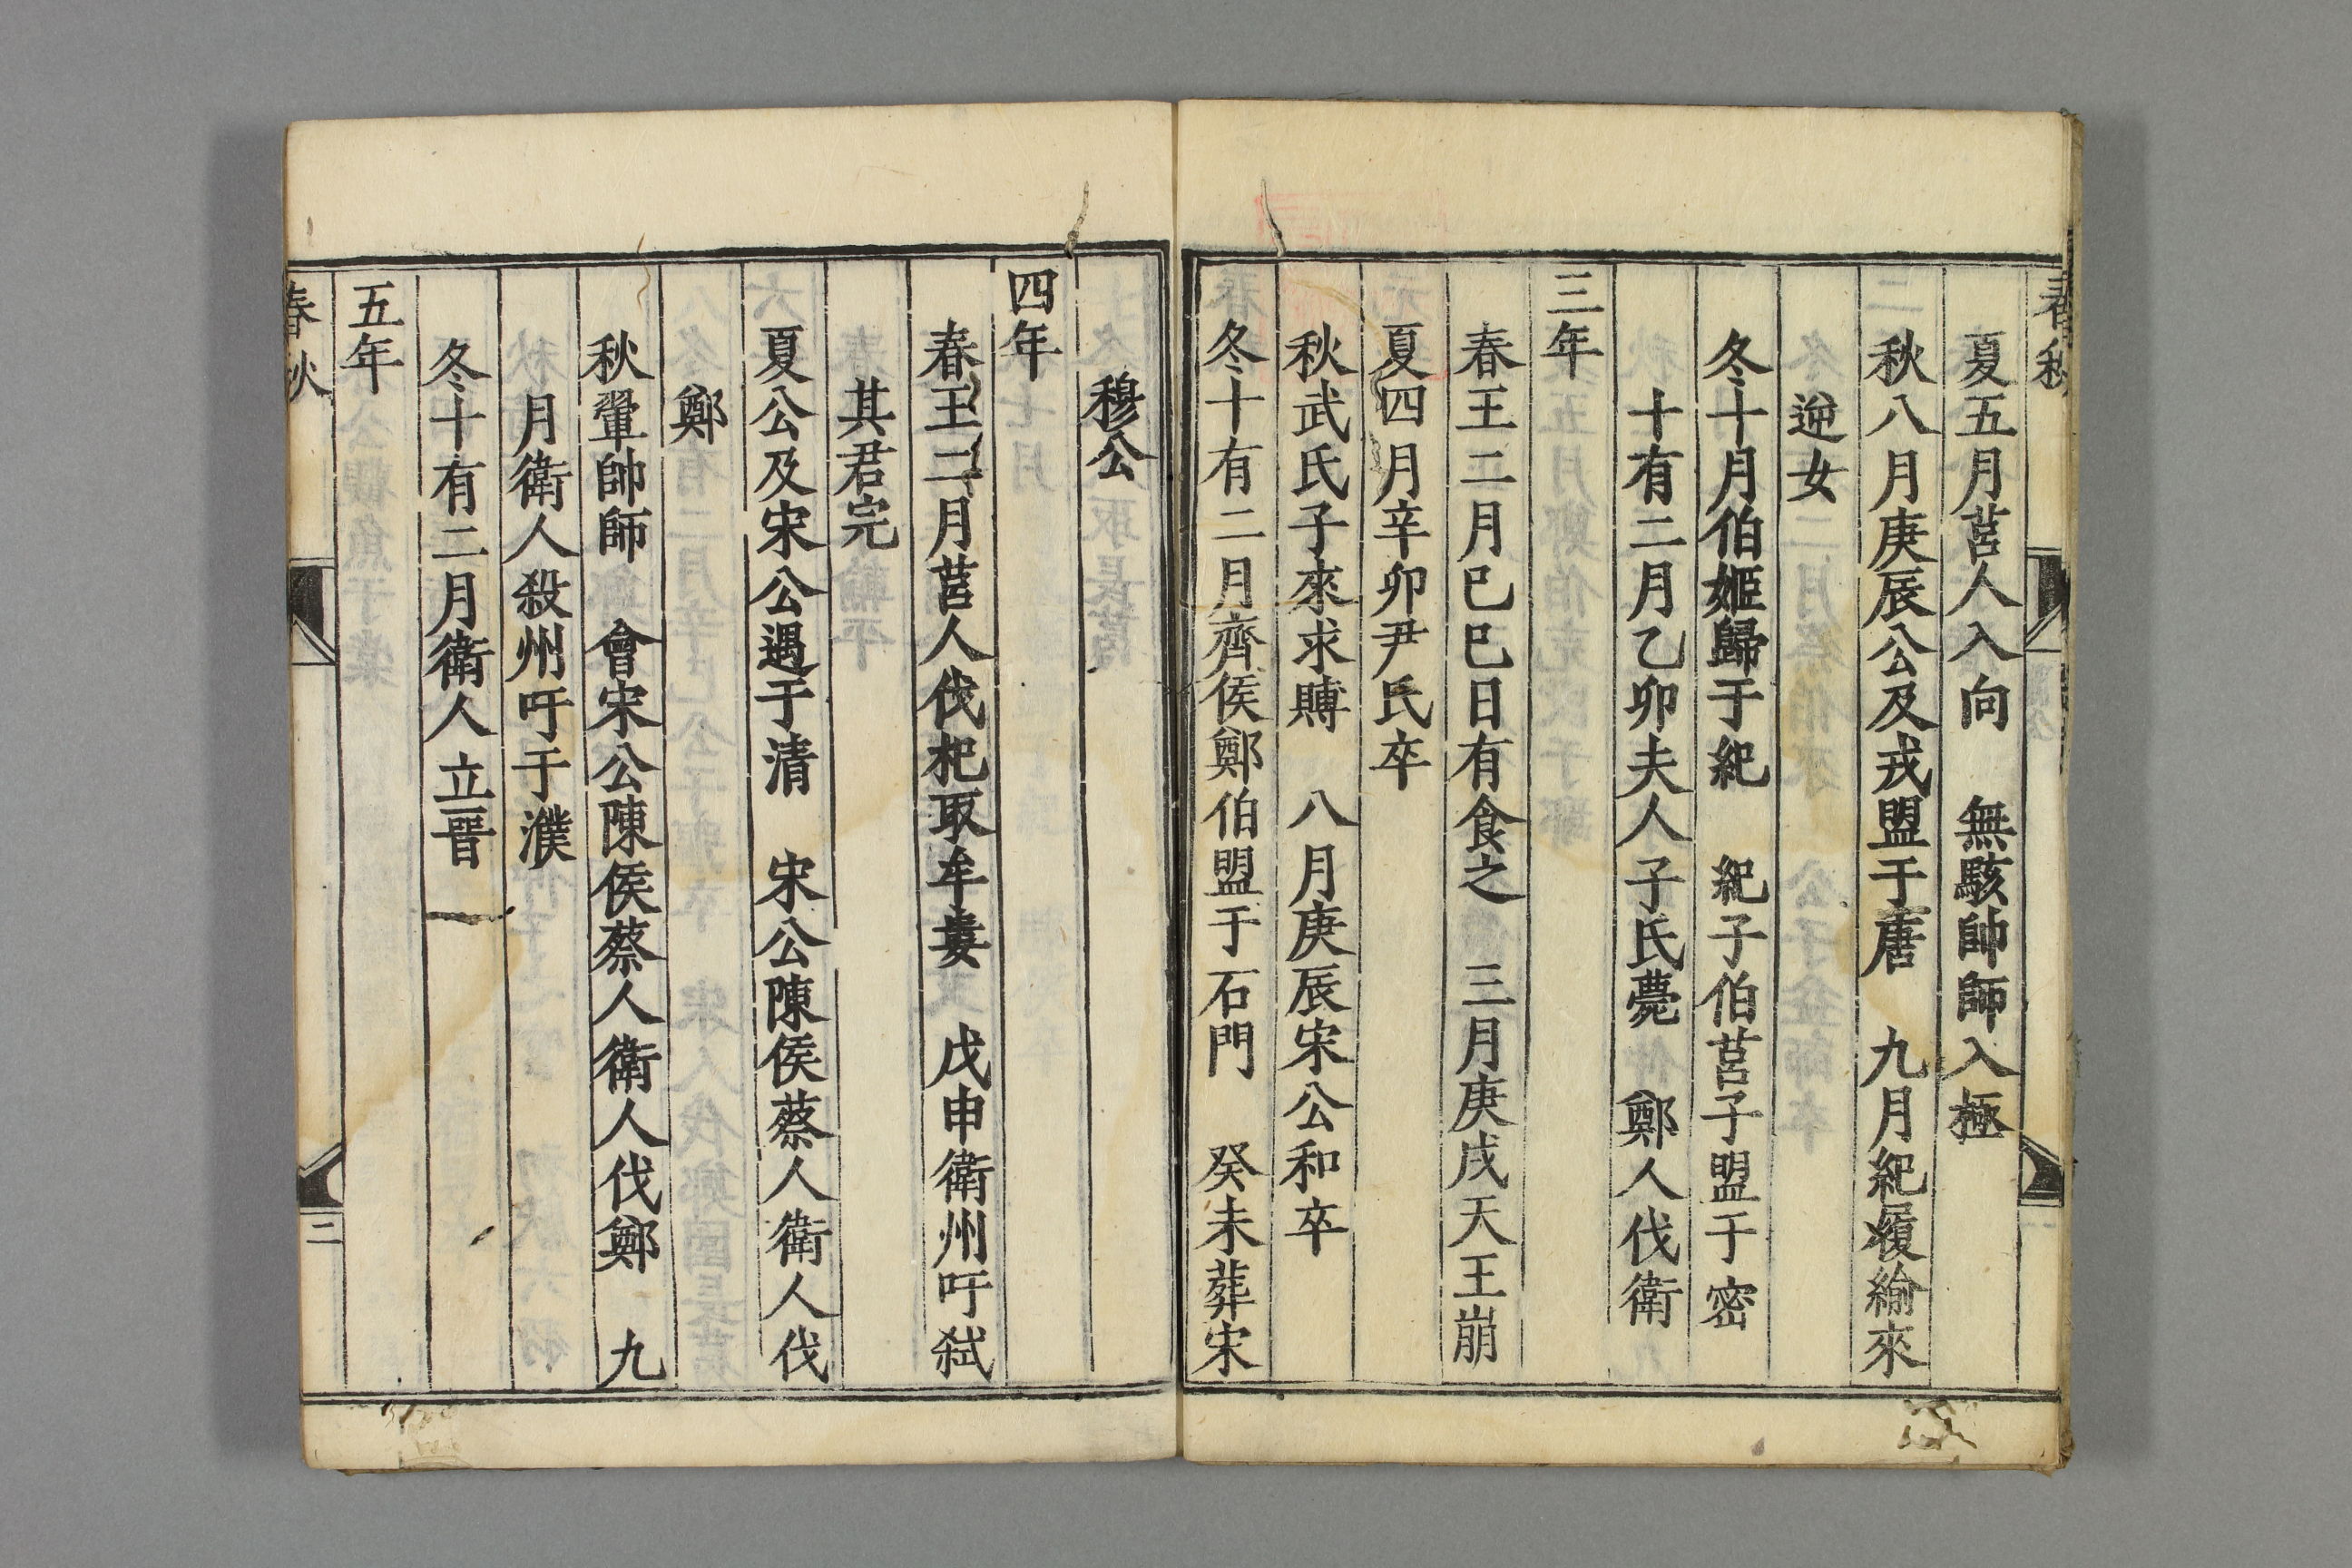 春秋
夏五月莒人入向　無駭帥師入極
秋八月庚辰公及戎盟于唐　九月紀履綸來
逆女
冬十月伯姬歸于紀　紀子伯莒子盟于密
十有二月乙卯夫人子氏薨　鄭人伐衛
三年
春王二月己巳日有食之　三月庚戌天王崩
夏四月辛卯尹氏卒
秋武氏子來求賻　八月庚辰宋公和卒
冬十有二月齊侯鄭伯盟于石門　癸未葬宋
穆公
四年
春王二月莒人伐杞取牟婁　戊申衛州吁弑
其君完
夏公及宋公遇于清　宋公陳侯蔡人衛人伐
鄭
秋翬帥師　會宋公陳侯蔡人衛人伐鄭　九
月衛人殺州吁于濮
冬十有二月衛人立晉
五年
春秋
二